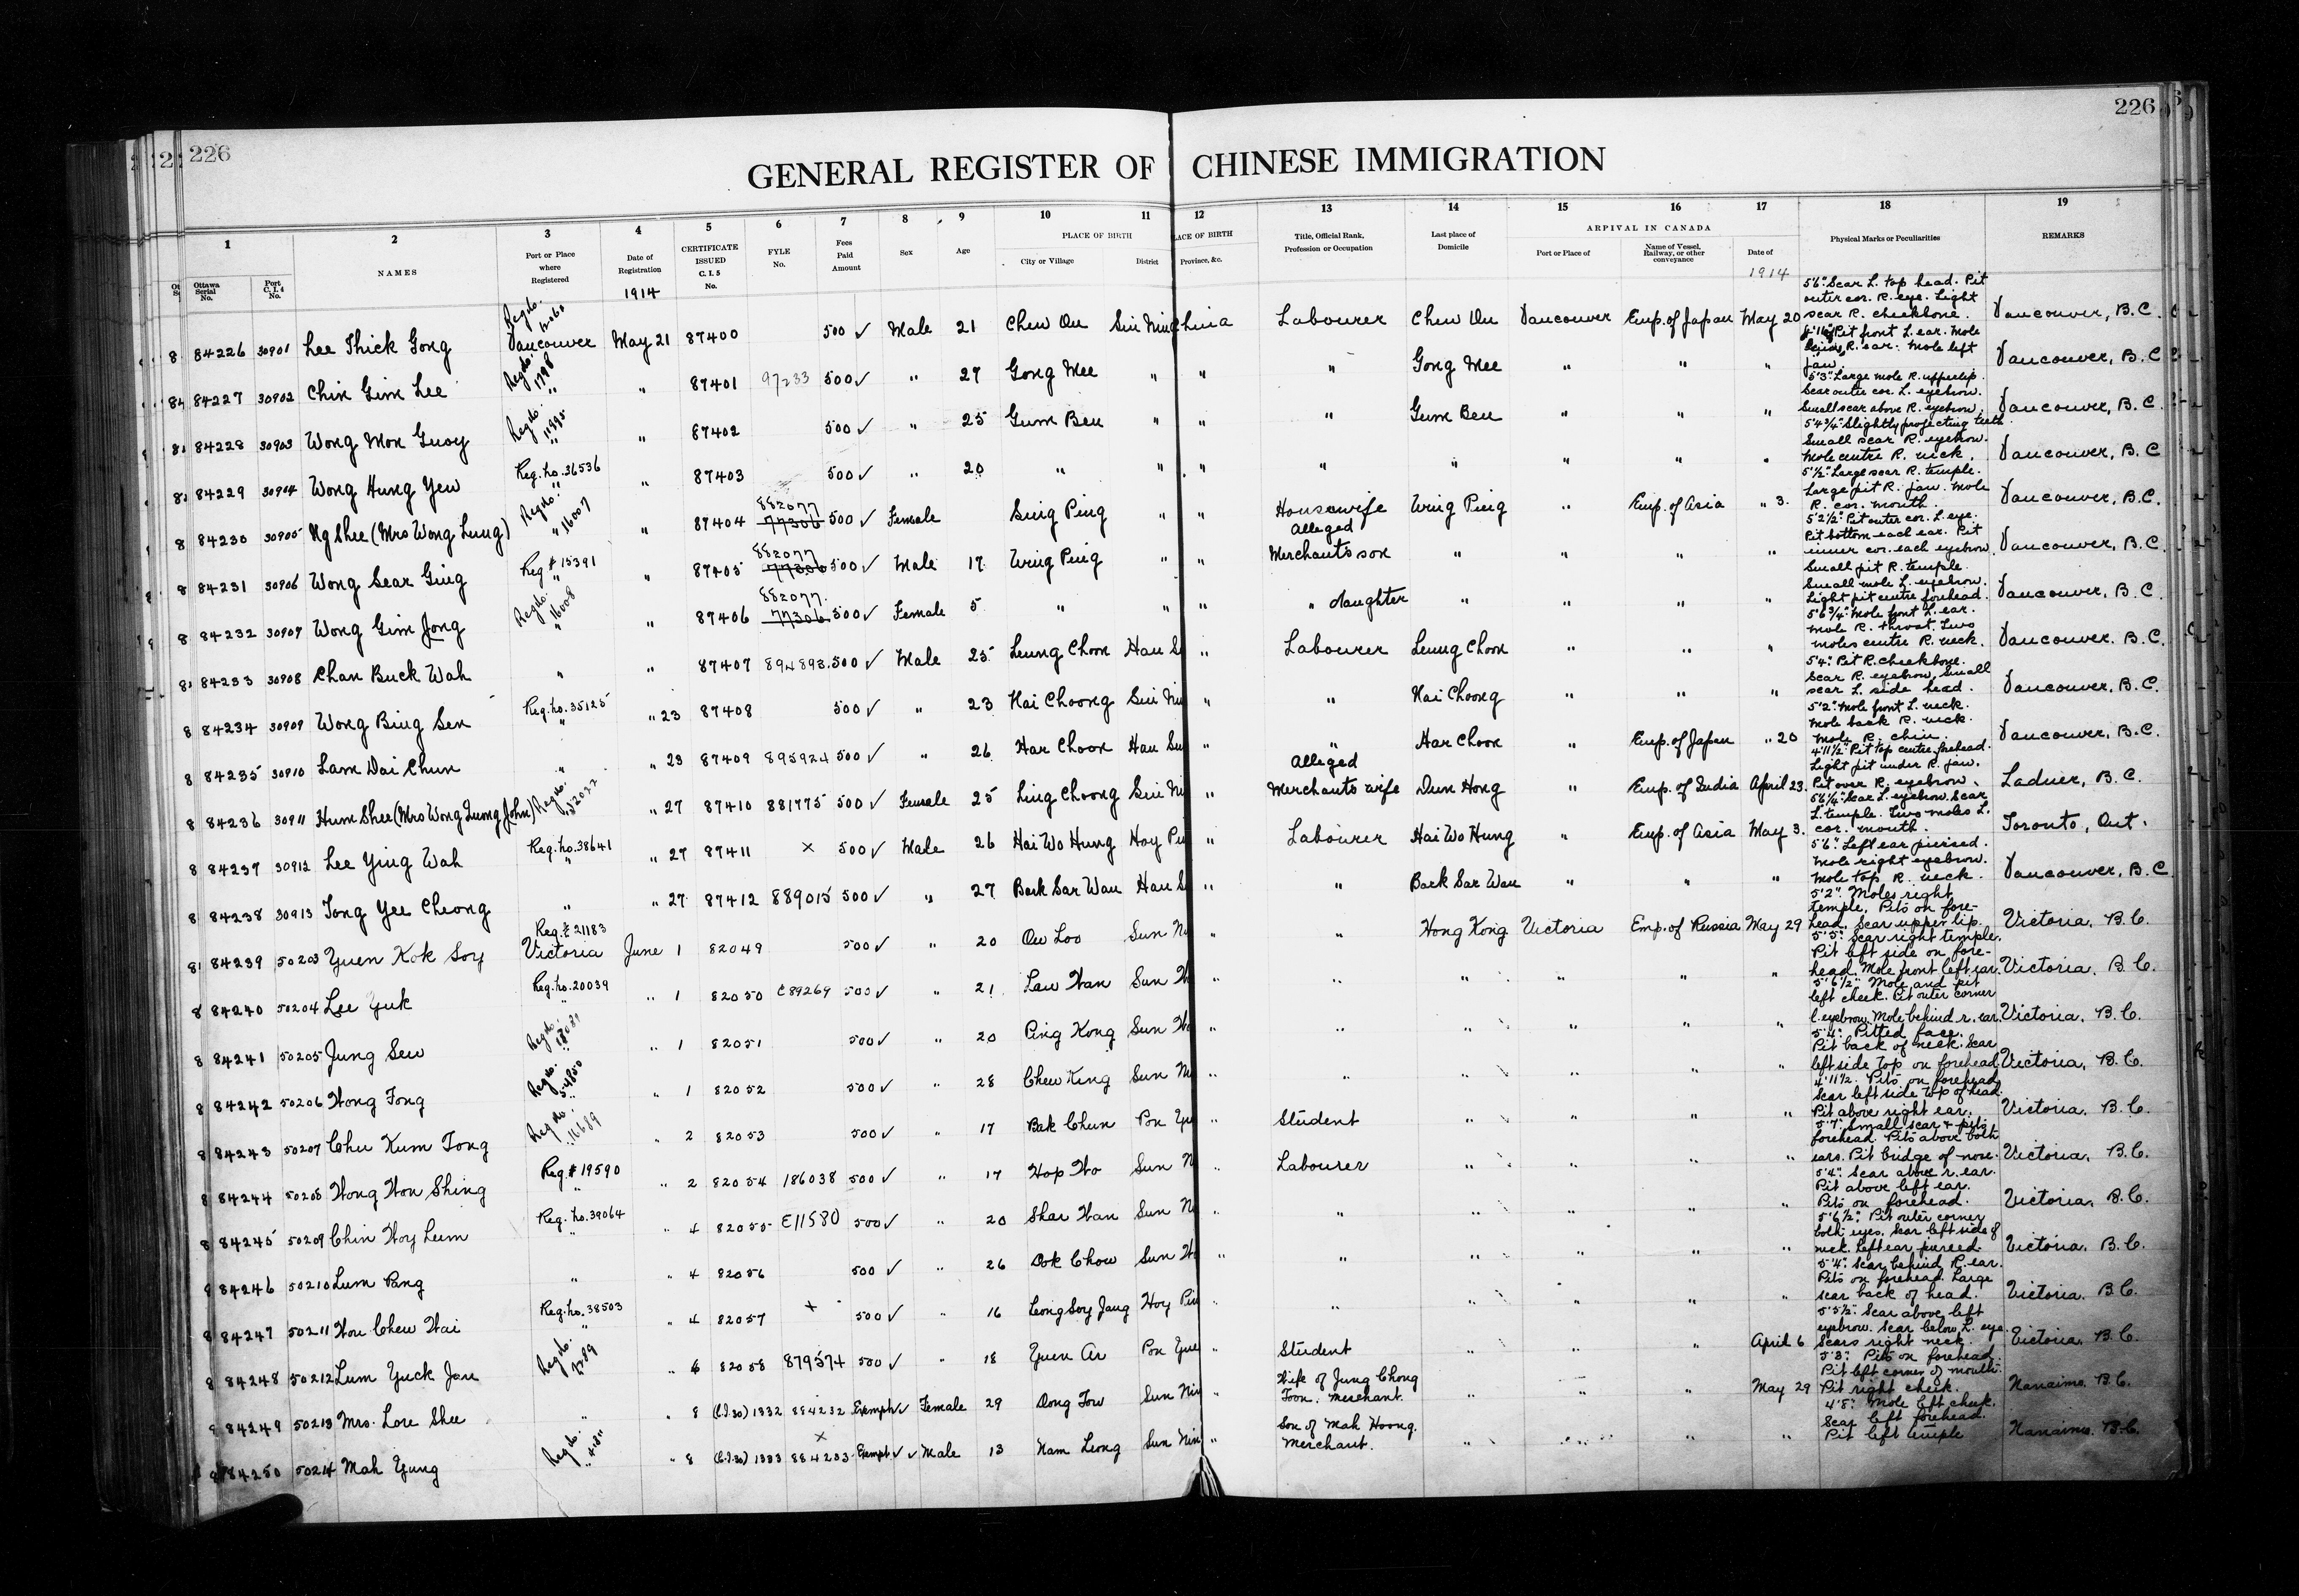 226
226
GENERAL REGISTER OF CHINESE IMMIGRATION
1 2 3 4 5 6 7 8 9 10 11 12 13 14 15 16 17 18 19
PLACE OF BIRTH PLACE OF BIRTH ARRIVAL IN CANADA
Ottawa Serial No. Port C.I.4 No. NAMES Port or Place where Registered Date of Registration CERTIFICATE ISSUED C.I.5 No. FYLE No. Fees Paid Amount Sex Age City or Village District Province, &c. Title, Official Rank, Profession or Occupation Last place of Domicile Port or Place of Name of Vessel, Railway, or other conveyance Date of Physical Marks or Peculiarities REMARKS
1914 1914
84226 30901 Lee Thick Gong Vancouver May 21 87400 500 ✓ Male 21 Chew On Sin Ning China Labourer Chew On Vancouver Emp. of Japan May 20 5'6". Scar L. top head. Pit outer cor. R. eye. Light scar R. cheekbone. Vancouver, B.C.
84227 30902 Chin Gim Lee Reg. No. 1798 " " 87401 97233 500 ✓ " 27 Gong Mee " " " Gong Mee " " " Pit front L. ear. Mole R. ear. Mole left jaw. Vancouver, B.C.
84228 30903 Wong Mon Guoy " 87402 500 ✓ " 25 Gum Ben " " " Gum Ben " " " 5'3". Large mole R. upperlip. Scar outer cor. L. eyebrow. Small scar above R. eyebrow. Vancouver, B.C.
84229 30904 Wong Hung Yew Reg. No. 36536 " " 87403 500 ✓ " 20 " " " " " " " " 5'4¾". Slightly projecting teeth. Small scar R. eyebrow. Mole centre R. neck. Vancouver, B.C.
84230 30905 Ng Shee (Mrs Wong Lung) Reg. No. 16007 " " 87404 882077 77306 500 ✓ Female Sing Ping " " Housewife Wing Ping " Emp. of Asia " 3. 5'½". Large scar R. temple. Large pit R. jaw. Mole R. cor. mouth. Vancouver, B.C.
84231 30906 Wong Sear Ging Reg # 15391 " " 87405 882077 77306 500 ✓ Male 17 Wing Ping " " Alleged Merchants son " " " " 5'2½". Pit outer cor. L. eye. Pit bottom each ear. Pit inner cor. each eyebrow. Vancouver, B.C.
84232 30907 Wong Gim Jong Reg. No. 16008 " " 87406 882077 77306 500 ✓ Female 5 " " " " daughter " " " " Small pit R. temple. Small mole L. eyebrow. Light pit centre forehead. Vancouver, B.C.
84233 30908 Chan Buck Wah " " 87407 894893 500 ✓ Male 25 Leung Choon Hau S Labourer Leung Choon " " " 5'6¾". Mole front L. ear. Mole R. throat. Two moles centre R. neck. Vancouver, B.C.
84234 30909 Wong Bing Sen Reg. No. 35125 " " 23 87408 500 ✓ " 23 Hai Choong Sin Nin " " Hai Choong " " " 5'4". Pit R. cheekbone. Scar R. eyebrow, small scar L. side head. Vancouver, B.C.
84235 30910 Lam Dai Chun " " 23 87409 895924 500 ✓ " 26 Har Choon Hau Su " " Har Choon " Emp. of Japan " 20 5'2". Mole front L. neck. Mole back R. neck. Mole R. chin. Vancouver, B.C.
84236 30911 Hum Shee (Mrs Wong Luong John) " 27 87410 881775 500 ✓ Female 25 Ling Choong Sin Ni " Alleged Merchants wife Dun Hong " Emp. of India April 23. 4'11½". Pit top centre forehead. Light pit under R. jaw. Pit over R. eyebrow. Ladner, B.C.
84237 30912 Lee Ying Wah Reg. No. 38641 " " 27 87411 × 500 ✓ Male 26 Hai Wo Hung Hoy Pin " Labourer Hai Wo Hung " Emp. of Asia May 3. 5'6¼". Scar L. eyebrow. Scar L. temple. Two moles L. cor. mouth. Toronto, Ont.
84238 30913 Tong Yee Cheong " " 27 87412 889015 500 ✓ " 27 Bark Sar Wan Hau S " " Bark Sar Wan " " " 5'6". Left ear pierced. Mole right eyebrow. Mole top R. neck. Vancouver, B.C.
84239 50203 Yuen Kok Soy Reg. # 21183 Victoria June 1 82049 500 ✓ " 20 On Loo Sun N " " Hong Kong Victoria Emp. of Russia May 29 5'2". Moles right temple. Pits on forehead. Scar upper lip. Victoria, B.C.
84240 50204 Lee Yuk Reg. No. 20039 " " 1 82050 C89269 500 ✓ " 21 Law Wan Sun " " " " " " 5'5". Scar right temple. Pit left side on forehead. Mole front left ear. Victoria, B.C.
84241 50205 Jung Sew " 1 82051 500 ✓ " 20 Ping Kong Sun " " " " " " 5'6½". Mole and pit left cheek. Pit outer corner l. eyebrow. Mole behind r. ear. Victoria, B.C.
84242 50206 Wong Fong " 1 82052 500 ✓ " 28 Chew King Sun " " " " " " 5'4". Pitted face. Pit back of neck. Scar left side top on forehead. Victoria, B.C.
84243 50207 Chu Kum Tong Reg. No. 16689 " " 2 82053 500 ✓ " 17 Bak Chun Pon Yu " Student " " " " 4'11½. Pits on forehead. Scar left side top of head. Pit above right ear. Victoria, B.C.
84244 50208 Wong Won Shing Reg # 19590 " " 2 82054 186038 500 ✓ " 17 Hop Wo Sun N " Labourer " " " " 5'7". Small scar & pits forehead. Pits above both ears. Pit bridge of nose. Victoria, B.C.
84245 50209 Chin Hoy Lum Reg. No. 39064 " " 4 82055 E11580 500 ✓ " 20 Shar Wan Sun N " " " " " " 5'4". Scar above r. ear. Pit above left ear. Pits on forehead. Victoria, B.C.
84246 50210 Lum Pang " " 4 82056 500 ✓ " 26 Dok Chow Sun " " " " " " 5'6½". Pit outer corner both eyes. Scar left side of neck. Left ear pierced. Victoria, B.C.
84247 50211 Wou Chew Wai Reg. No. 38503 " " 4 82057 × 500 ✓ " 16 Leong Soy Jang Hoy Pin " " " " " " 5'4". Scar behind R. ear. Pits on forehead. Large scar back of head. Victoria, B.C.
84248 50212 Lum Yuck Jan " 6 82058 879574 500 ✓ " 18 Yuen Ar Pon Yue " Student " " " April 6 5'5½". Scar above left eyebrow. Scar below L. eye. Scars right neck. Victoria, B.C.
84249 50213 Mrs. Lore Shee " " 8 (C.I.30) 1332 884232 Exempt ✓ Female 29 Dong Tow Sun Nin " Wife of Jung Chong Toon. Merchant. " " " May 29 5'3". Pits on forehead. Pit left corner of mouth. Pit right cheek. Nanaimo. B.C.
84250 50214 Mah Yung " 8 (C.I.30) 1333 × 884233 Exempt ✓ ✓ Male 13 Nam Leong Sun Nin " Son of Mah Hoong. Merchant. " " " " 4'8". Mole left cheek. Scar left forehead. Pit left temple Nanaimo. B.C.